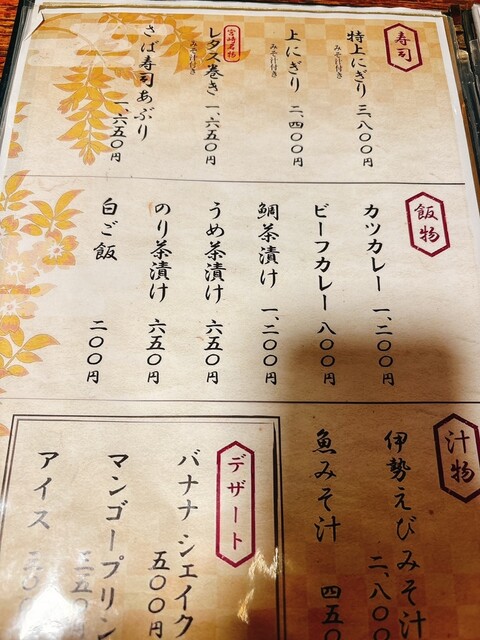 寿司
特上にぎり 三、八〇〇円
みそ汁付き
上にぎり 二、四〇〇円
みそ汁付き
宮崎名物
レタス巻き 一、六五〇円
みそ汁付き
さば寿司あぶり
一、六五〇円
飯物
カツカレー 一、二〇〇円
ビーフカレー 八〇〇円
鯛茶漬け 一、二〇〇円
うめ茶漬け 六五〇円
のり茶漬け 六五〇円
白ご飯 二〇〇円
汁物
伊勢えびみそ汁
二、八〇〇
魚みそ汁 四五〇
デザート
バナナシェイク
五〇〇円
マンゴープリン
三五〇
アイス